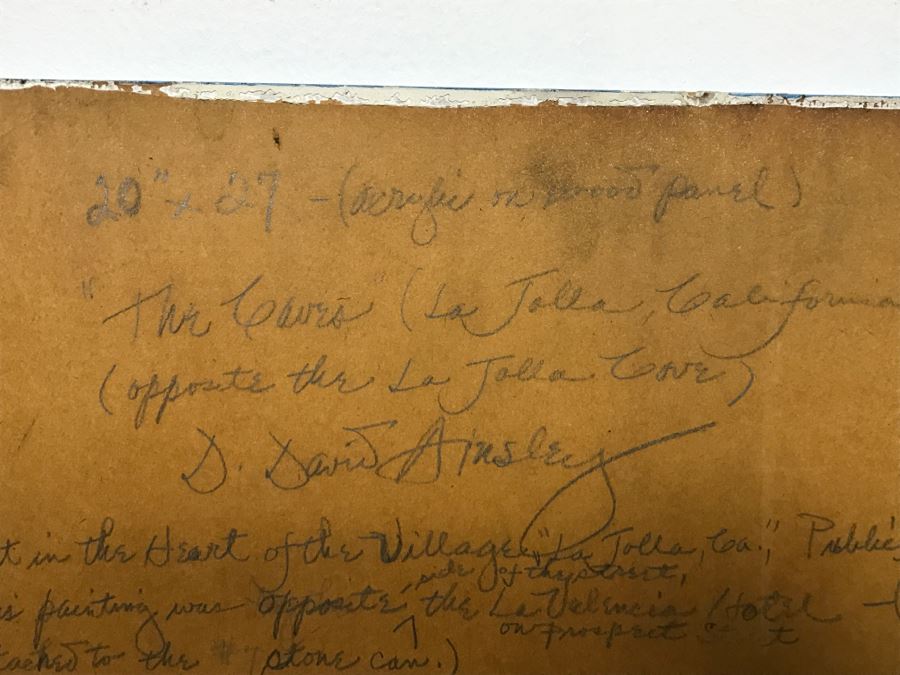 20" x 27 - (acrylic on wood panel)
"The Caves" (La Jolla, California
(opposite the La Jolla Cove)
D. David Ainsley
t in the Heart of the Village, "La Jolla, Ca.", Public
side of the street,
is painting was opposite the La Valencia Hotel - (
on Prospect Street
tached to the #7 stone can.)